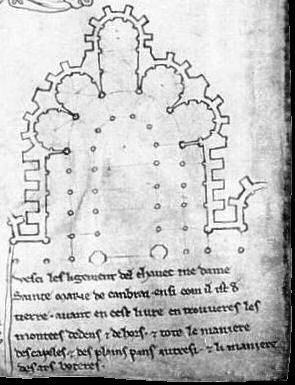 vesci les ligement del chavec me dame
Sainte marie de canbrai ensi com il ist de
tierre · avant en cest livre en troveres les
montees dedens ⁊ dehors · ⁊ tote le maniere
des capeles ⁊ des plains pans autresi · ⁊ li maniere
des ars boteres ·